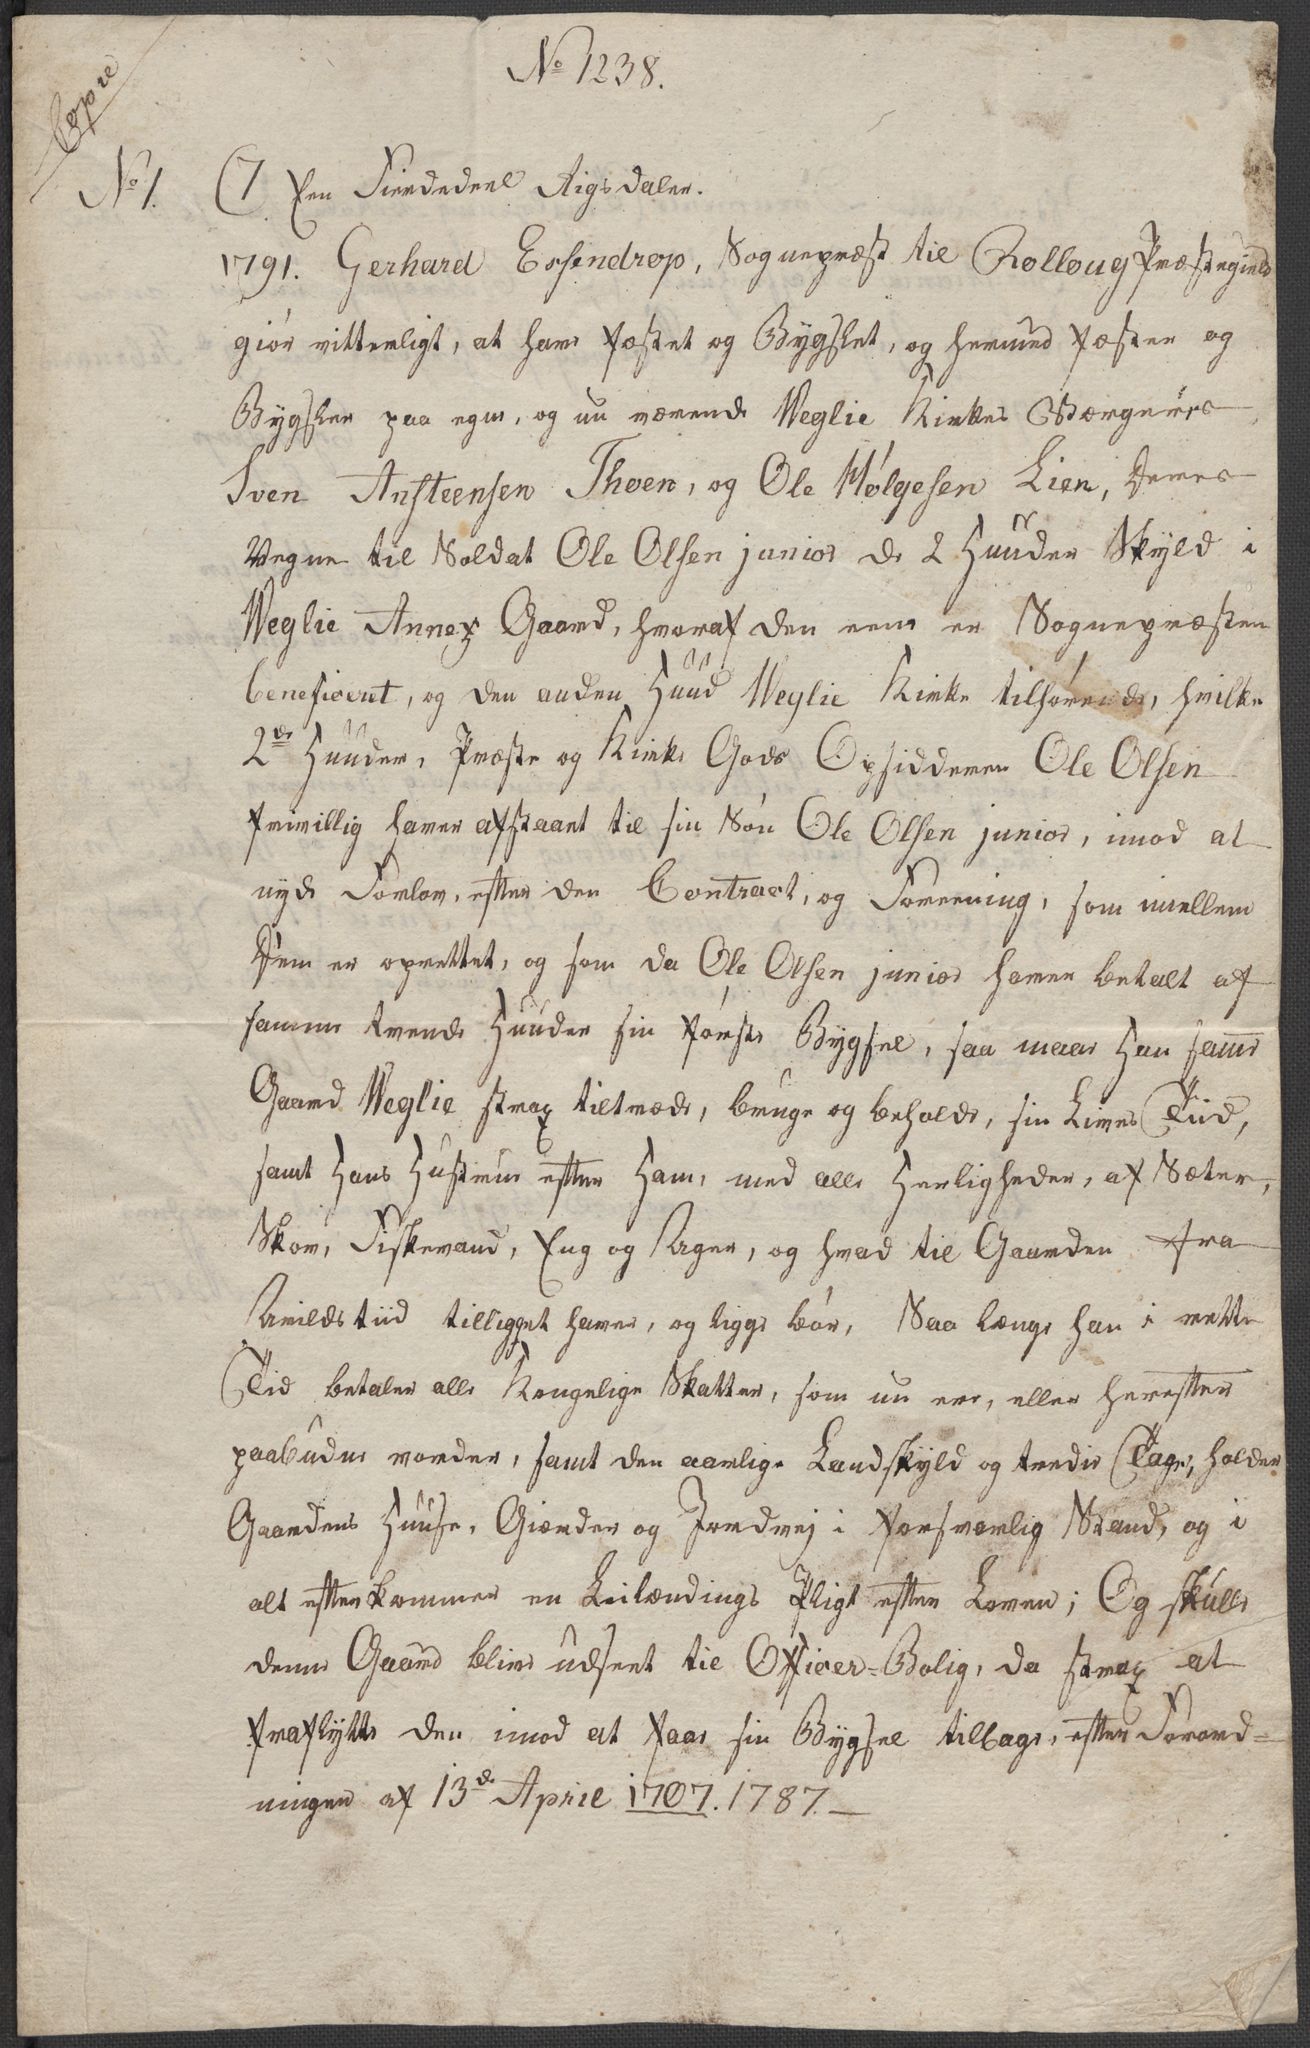 No 1238.
Copie
No 1. C7 Een Fierdedeel Rigsdaler.
1791. Gerhard Essendrop, Sognepræst til Rolloug Præstegield
giör vitterligt, at have fæstet og Bygslet, og hermed fæster og
Bygsler paa egne, og nu værende Weglie Kirkes Wærgeürs
Sven Ansteensen Thoen, og Ole Hølgesen Lien, deres
Vegne til Soldat Ole Olsen junior de 2 Huuder Skyld i
Weglie Annex Gaard, hvoraf den eene er Sognepræsten
beneficeret, og den anden Huud Weglie Kirke tilhørende, hvilke
2de Huuder, Præste og Kirke Gods Opsidderen Ole Olsen
frivillig haver afstaaet til sin Sön Ole Olsen junior, imod at
nyde Forlov, efter den Contract, og Foreening, som imellem
Dem er oprettet, og som da Ole Olsen junior haver betalt af
samme tvende Huuder sin förste Bygsel, saa maae Han samme
Gaard Weglie strax tiltræde, bruge og beholde, sin Lives Tiid,
samt Hans Hustrue efter Ham, med alle Herligheder, af Sæter,
Skov, Fiskevand, Eng og Ager, og hvad til Gaarden fra
Arilds tiid tilligget haver, og ligge bör, Saa længe han i rette
Tid betaler alle Kongelige Skatter, som nu ere, eller herefter
paabudne vorder, samt den aarlige Landskyld og tredie Tage, holder
Gaardens Huuse, Giærder og Jordvej i forsvarlig Stand, og i
alt efterkommer en Leilændings Pligt efter Loven; Og skulle
denne Gaard blive udseet til Officer-Bolig, da strax at
fraflytte den imod at faae sin Bygsel tilbage, efter Forord-
ningen af 13de April 1707. 1787.